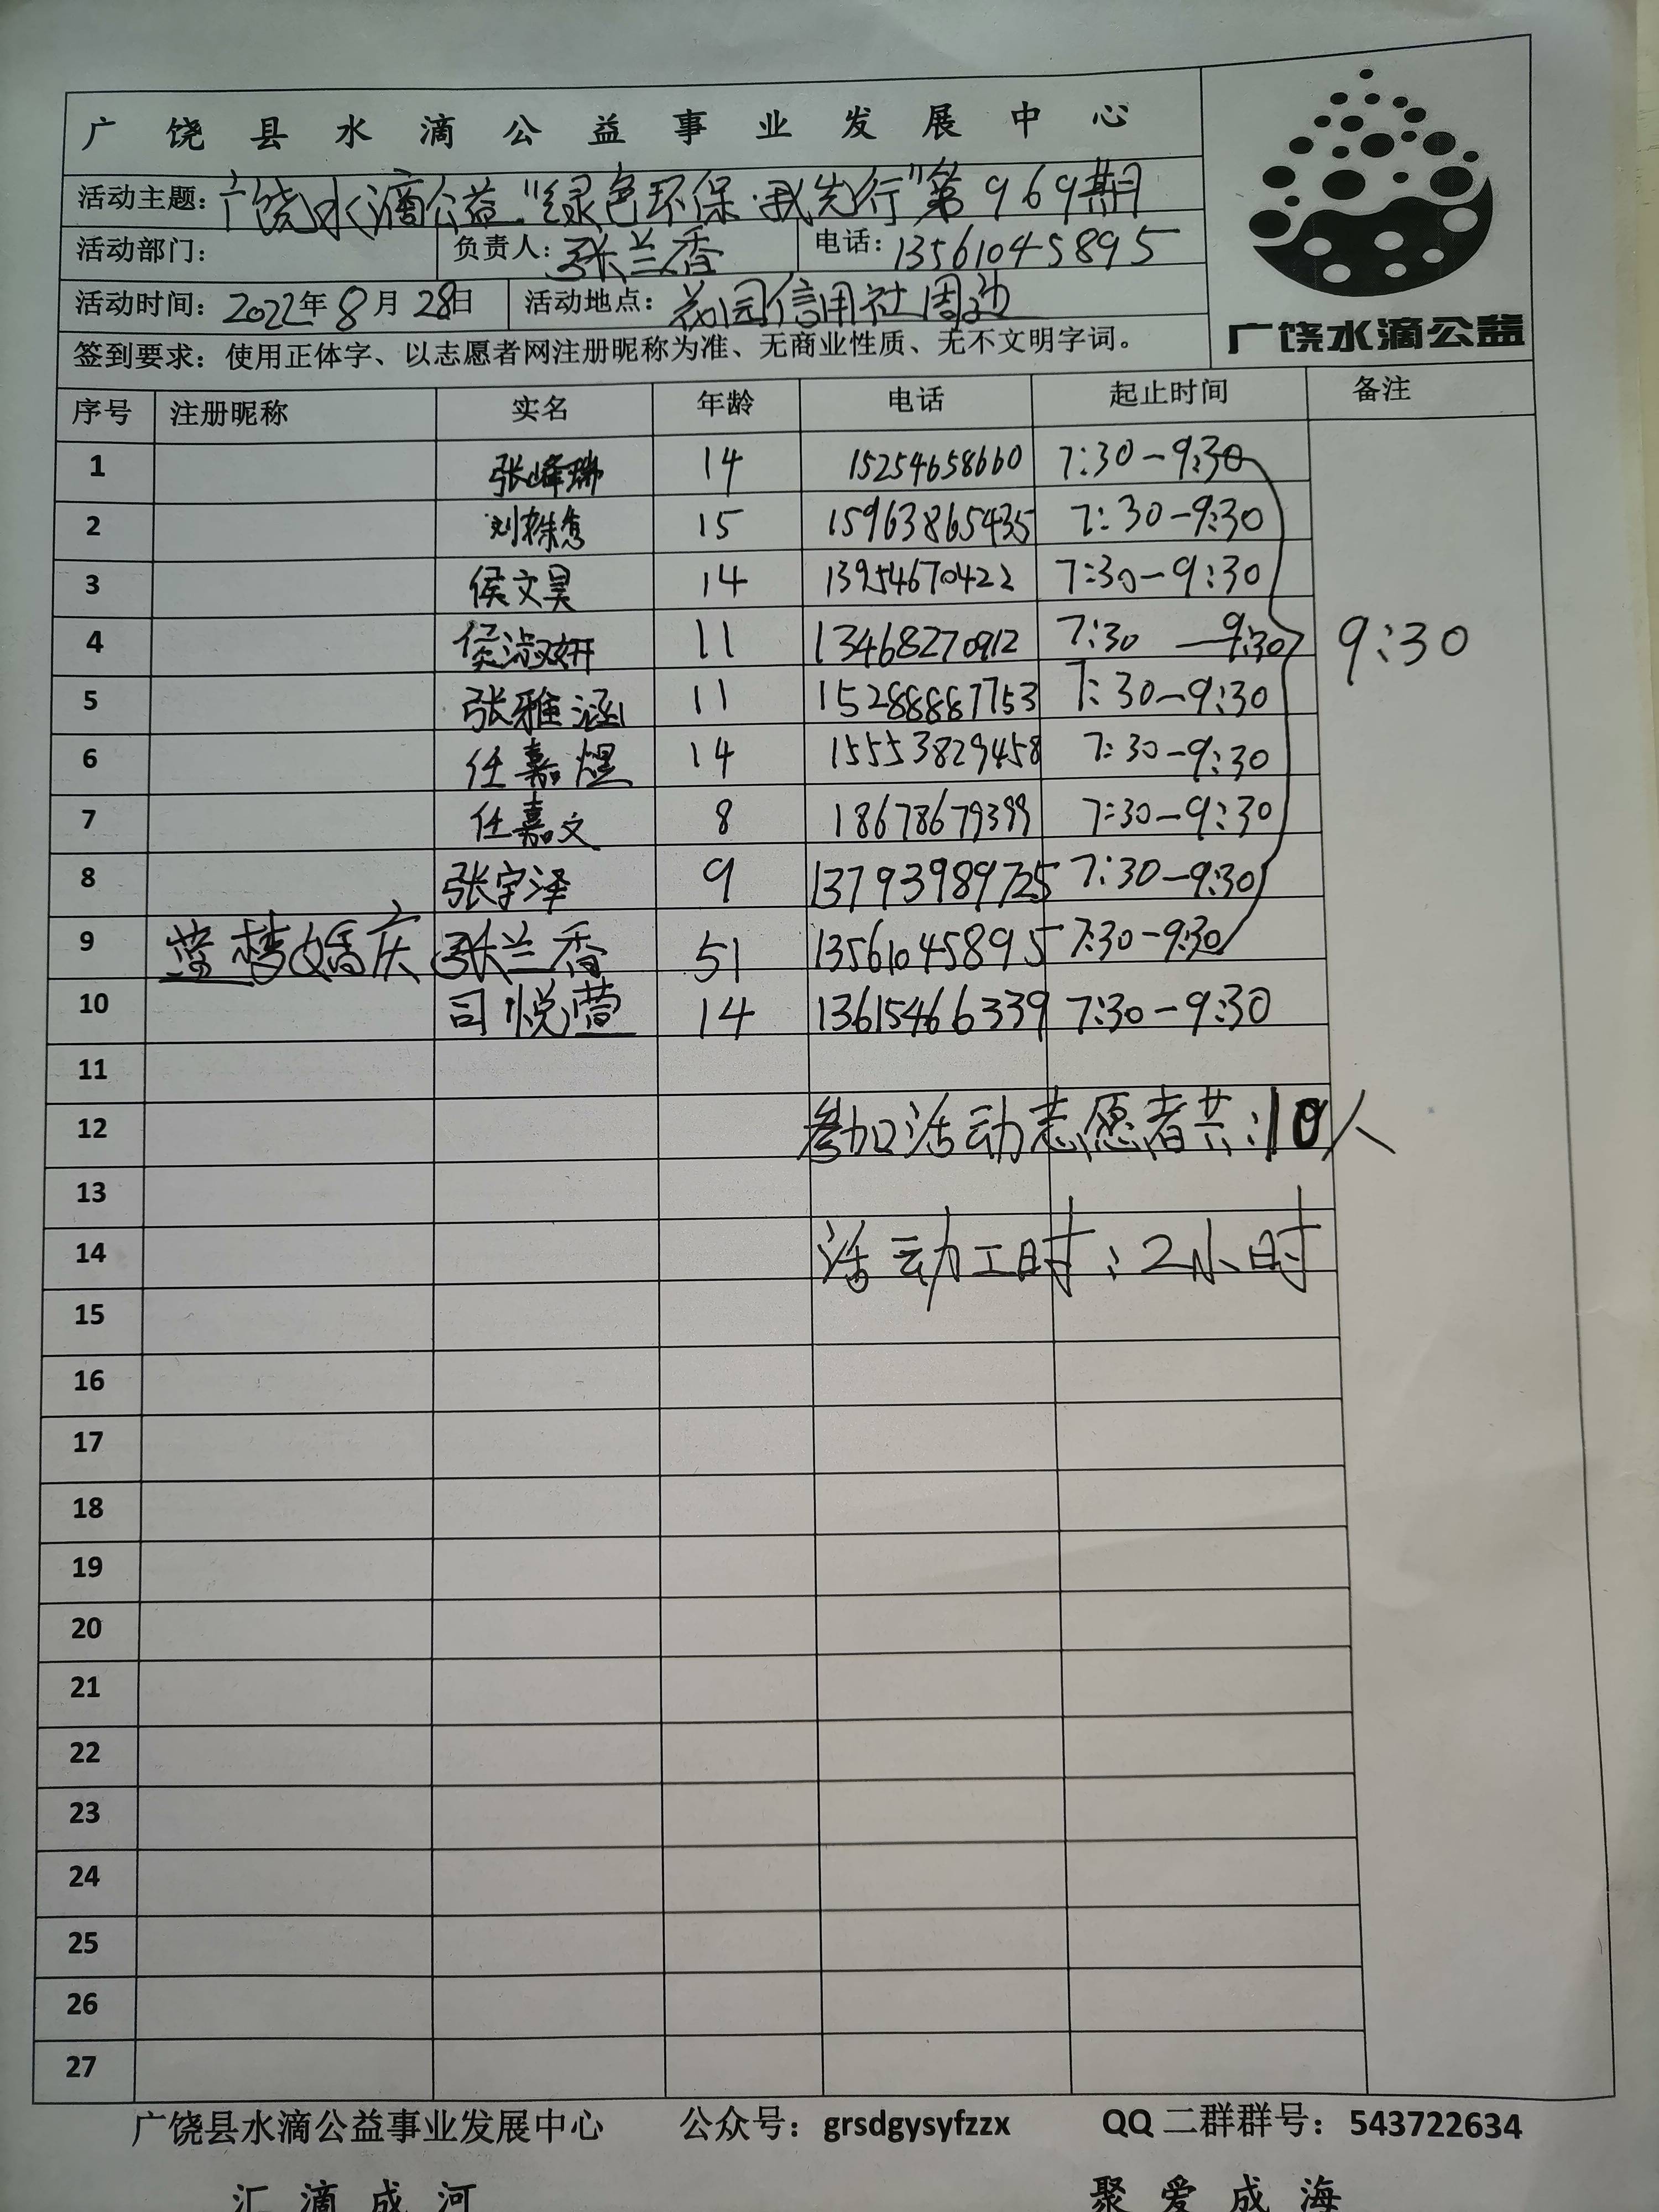 广饶县水滴公益事业发展中心
活动主题：广饶水滴公益"绿色环保·我先行"第969期
活动部门： 负责人：张兰香 电话：13561045895
活动时间：2022年8月28日 活动地点：花园信用社周边
签到要求：使用正体字、以志愿者网注册昵称为准、无商业性质、无不文明字词。
广饶水滴公益
序号 注册昵称 实名 年龄 电话 起止时间 备注
1 张峰瑞 14 15254658660 7:30-9:30
2 刘姝含 15 15963865435 7:30-9:30
3 侯文昊 14 13954670422 7:30-9:30
4 侯淑妍 11 13468270912 7:30-9:30 9:30
5 张雅涵 11 15288887753 7:30-9:30
6 任嘉煜 14 15553829458 7:30-9:30
7 任嘉文 8 18678679399 7:30-9:30
8 张宇泽 9 13793989725 7:30-9:30
9 蓝梦婚庆 张兰香 51 13561045895 7:30-9:30
10 司悦萱 14 13615466339 7:30-9:30
11
12 参加活动志愿者共:10人
13
14 活动工时:2小时
15
16
17
18
19
20
21
22
23
24
25
26
27
广饶县水滴公益事业发展中心 公众号：grsdgysyfzzx QQ二群群号：543722634
汇滴成河 聚爱成海